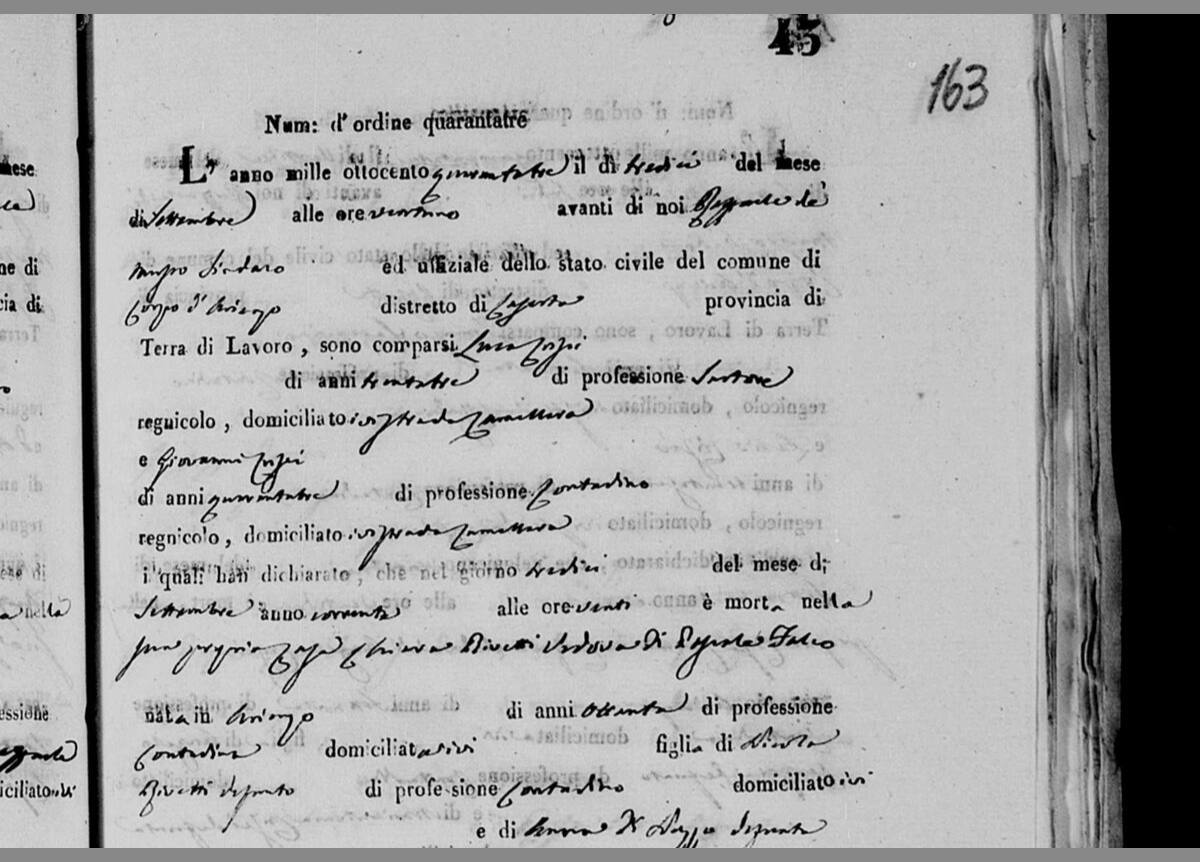 45
163
Num: d'ordine quarantatre
L' anno mille ottocento quarantatre il dì tredici del mese
di Settembre alle ore ventuno avanti di noi Raffaele de
Sindaco ed uffiziale dello stato civile del comune di
d'Arienzo distretto di Caserta provincia di
Terra di Lavoro, sono comparsi Luca Crisci
di anni trentatre di professione Sartore
regnicolo, domiciliato ivi strada
e Giovanni Crisci
di anni quarantatre di professione Contadino
regnicolo, domiciliato ivi strada
i quali han dichiarato, che nel giorno tredici del mese di
Settembre anno corrente alle ore venti è morta nella
sua propria casa Chiara Rivetti Vedova di Falco
nata in Arienzo di anni ottanta di professione
Contadina domiciliata ivi figlia di Nicola
Rivetti defunto di professione Contadino domiciliato ivi
e di defunta
mese
ne di
cia di
a nella
essione
iciliato ivi